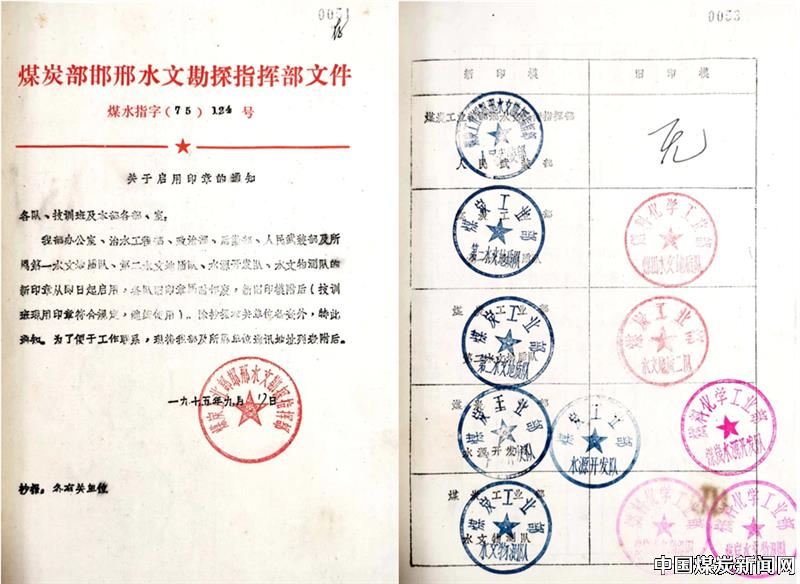 0051
煤炭部邯邢水文勘探指挥部文件
煤水指字(75)124号
关于启用印章的通知
各队、技训班及本部各部、室:
我部办公室、治水工程部、政治部、后勤部、人民武装部及所
属第一水文地质队、第二水文地质队、水源开发队、水文物测队的
新印章从即日起启用,各队旧印章
新旧印模附后(技训
班现用印章符合规定,继续使用)。除抄报有关单位备案外,特此
通知。为了便于工作联系,现将我部及所属单位通讯地址列表附后。
一九七五年九月17日
抄报:各有关单位
0053
新印模
旧印模
煤炭工业部邯邢水文勘探指挥部
人民武装部
无
煤炭工业部
第一水文地质队
燃料化学工业部
煤田水文地质队
煤炭工业部
第二水文地质队
水文地质二队
煤炭工业部
水源开发队
煤炭工业部
水源开发队
燃料化学工业部
煤炭水源开发队
煤炭工业部
水文物测队
燃料化学工业部
燃料化学工业部
中国煤炭新闻网